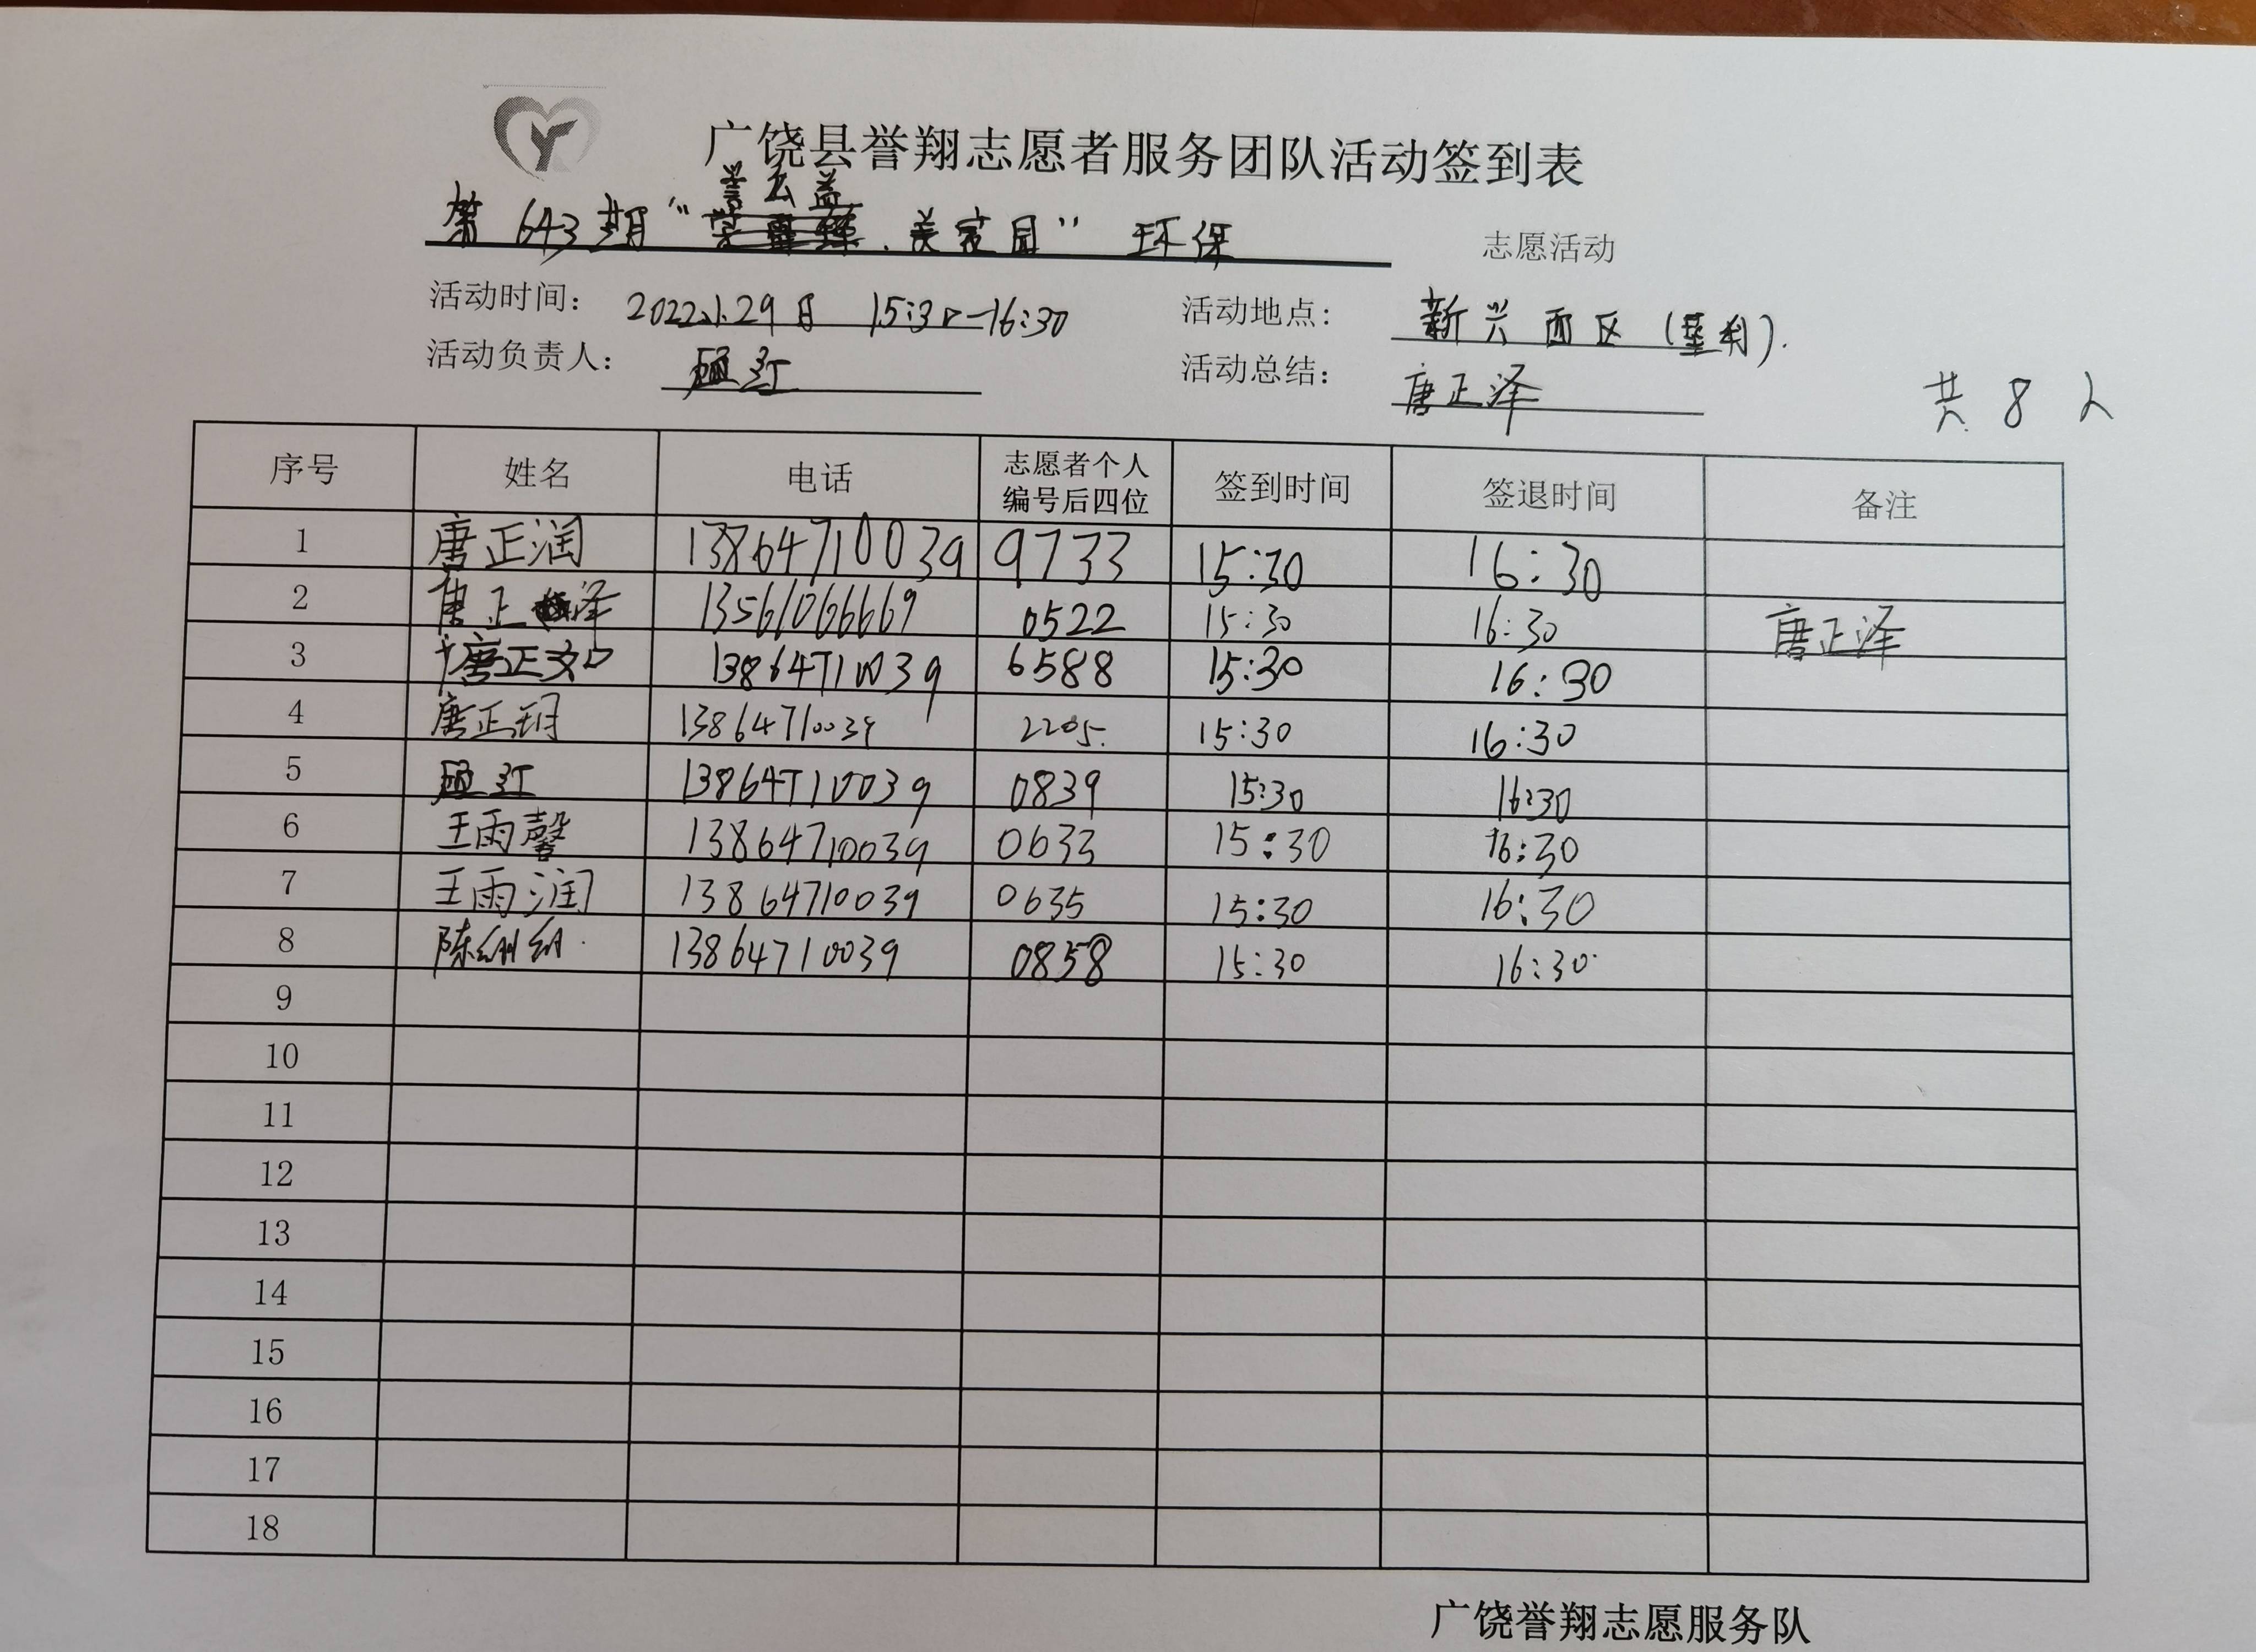 广饶县誉翔志愿者服务团队活动签到表
誉公益
第643期“美家园”环保 志愿活动
活动时间: 2022.1.29日 15:30-16:30 活动地点: 新兴西区(垦利).
活动负责人: 红 活动总结: 唐正泽 共8人
序号 姓名 电话 志愿者个人编号后四位 签到时间 签退时间 备注
1 唐正润 13864710039 9733 15:30 16:30
2 唐正泽 13561066669 0522 15:30 16:30 唐正泽
3 唐正 13864710039 6588 15:30 16:30
4 唐正玥 13864710039 2205. 15:30 16:30
5 红 13864710039 0839 15:30 16:30
6 王雨馨 13864710039 0633 15:30 16:30
7 王雨润 13864710039 0635 15:30 16:30
8 陈 13864710039 0858 15:30 16:30
9
10
11
12
13
14
15
16
17
18
广饶誉翔志愿服务队